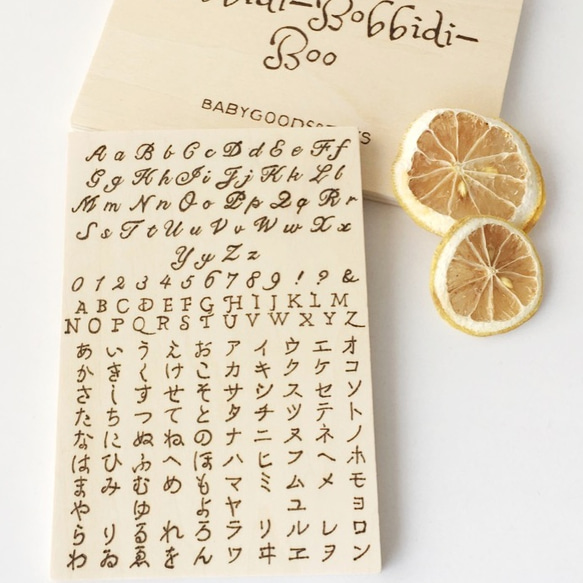 Bobbidi-
Boo
A a B b C c D d E e F f
G g H h I i J j K k L l
M m N n O o P p Q q R r
S s T t U u V v W w X x
Y y Z z
0 1 2 3 4 5 6 7 8 9 ! ? &
A B C D E F G H I J K L M
N O P Q R S T U V W X Y Z
あ い う え お ア イ ウ エ オ
か き く け こ カ キ ク ケ コ
さ し す せ そ サ シ ス セ ソ
た ち つ て と タ チ ツ テ ト
な に ぬ ね の ナ ニ ヌ ネ ノ
は ひ ふ へ ほ ハ ヒ フ ヘ ホ
ま み む め も マ ミ ム メ モ
や ゆ よ ヤ ユ ヨ
ら り る れ ろ ラ リ ル レ ロ
わ ゐ ゑ を ん ワ ヰ ヱ ヲ ン